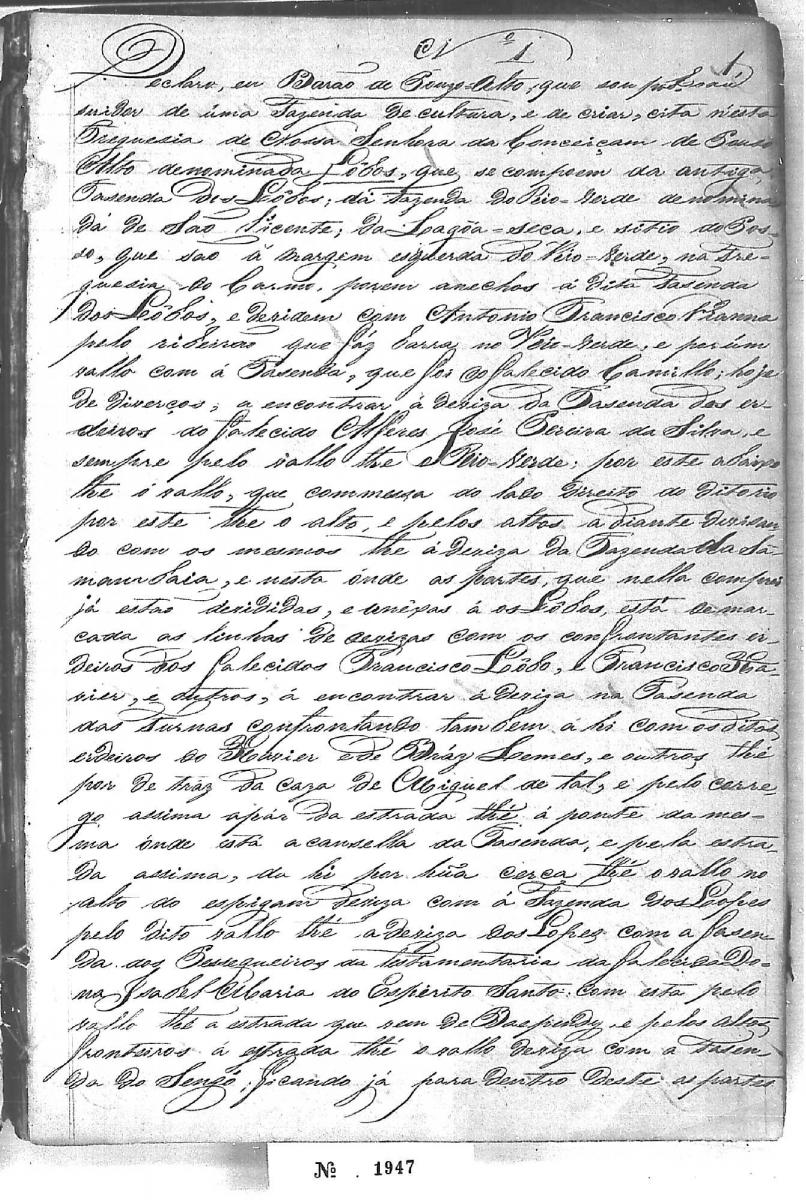 N.º 1 1
Declaro, eu Barão de Pouzo-Alto, que sou
suidor de uma Fazenda de cultura, e de criar, cita n'esta
Freguesia de Nossa Senhora da Conceiçam de Pouso
Alto denominada Lôbos, que se compoem da antiga
Fasenda dos Lôbos; da fazenda do Rio-Verde denomina
da de São Vicente; da Lagôa-seca, e sitio do Pos-
so, que sao à margem esquerda do Rio-Verde, na Fre-
guesia do Carmo, porem anechos á dita Fasenda
dos Lôbos, e devidem com Antonio Francisco Vianna
pelo ribeirao que fáz barra no Rio-Verde, e por úm
vallo com á Fasenda, que foi do falecido Camillo; hoje
de diverços; a encontrar á deviza da Fasenda dos er-
deiros do falecido Alferes José Pereira da Silva, e
sempre pelo vallo thé o Rio-Verde; por este abaixo
thé o vallo, que commessa do lado direito do dito rio
por este thé o alto, e pelos altos a diante devisan
do com os mesmos thé á deviza da Fazenda da
, e nesta ónde as partes, que nella comprei
já estao devididas, e á os Lôbos, está demar-
cada as linhas de devizas com os confrontantes er-
deiros dos falecidos Francisco Lôbo, e Francisco Xa-
vier, e outros, á encontrar á deviza na Fasenda
das Furnas confrontando tambem á hi com os ditos
erdeiros do Xavier e de Bráz Lemes, e outros thé
por de traz da caza de Miguel de tal, e pelo corre-
go assima apár da estrada thé á ponte da mes-
ma ónde está a cansella da Fasenda, e pela estra-
da assima, da hi por hũa cerca thé o vallo no
alto do espigam deviza com á Fazenda dos Lopes
pelo dito vallo thé a deviza dos Lopes com a fasen-
da dos Pessegueiros da testamentaria da falecida Do-
na Isabel Maria do Espirito Santo: com esta pelo
vallo thé a estrada que vem de Baependy, e pelos altos
fronteiros á estrada thé o vallo deviza com a Fasen-
da do Sengó; ficando já para dentro deste as partes
Nº 1947